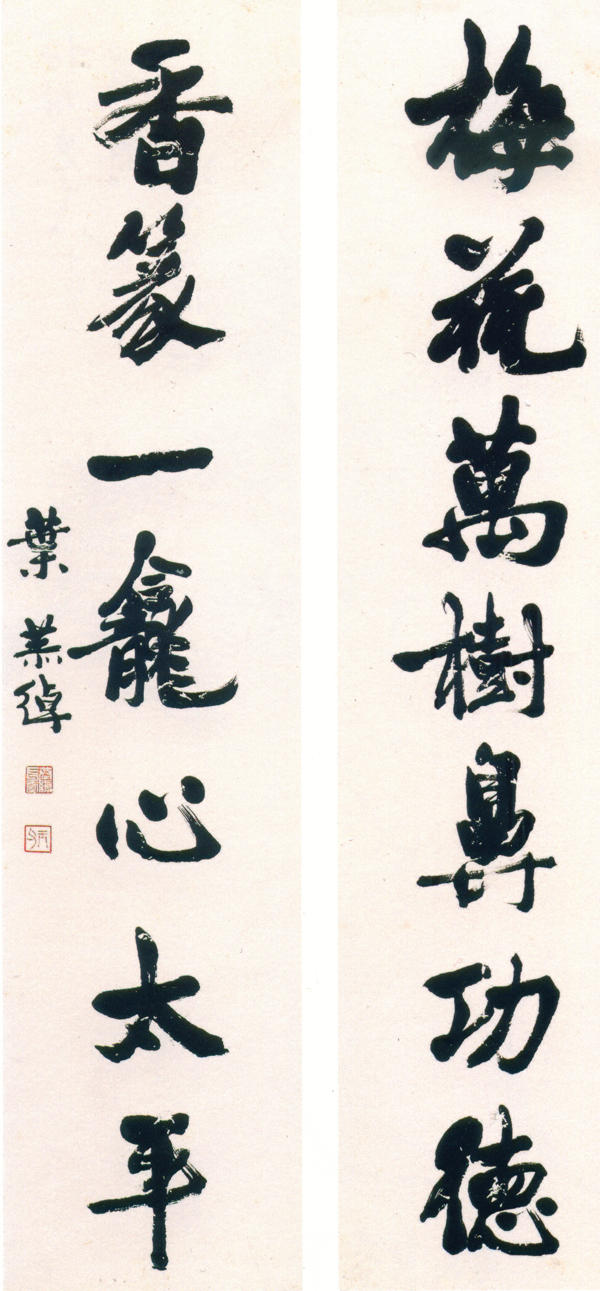 梅花萬樹鼻功德
香篆一龕心太平
葉恭綽